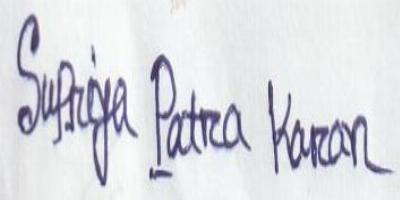 Supriya Patra Karan